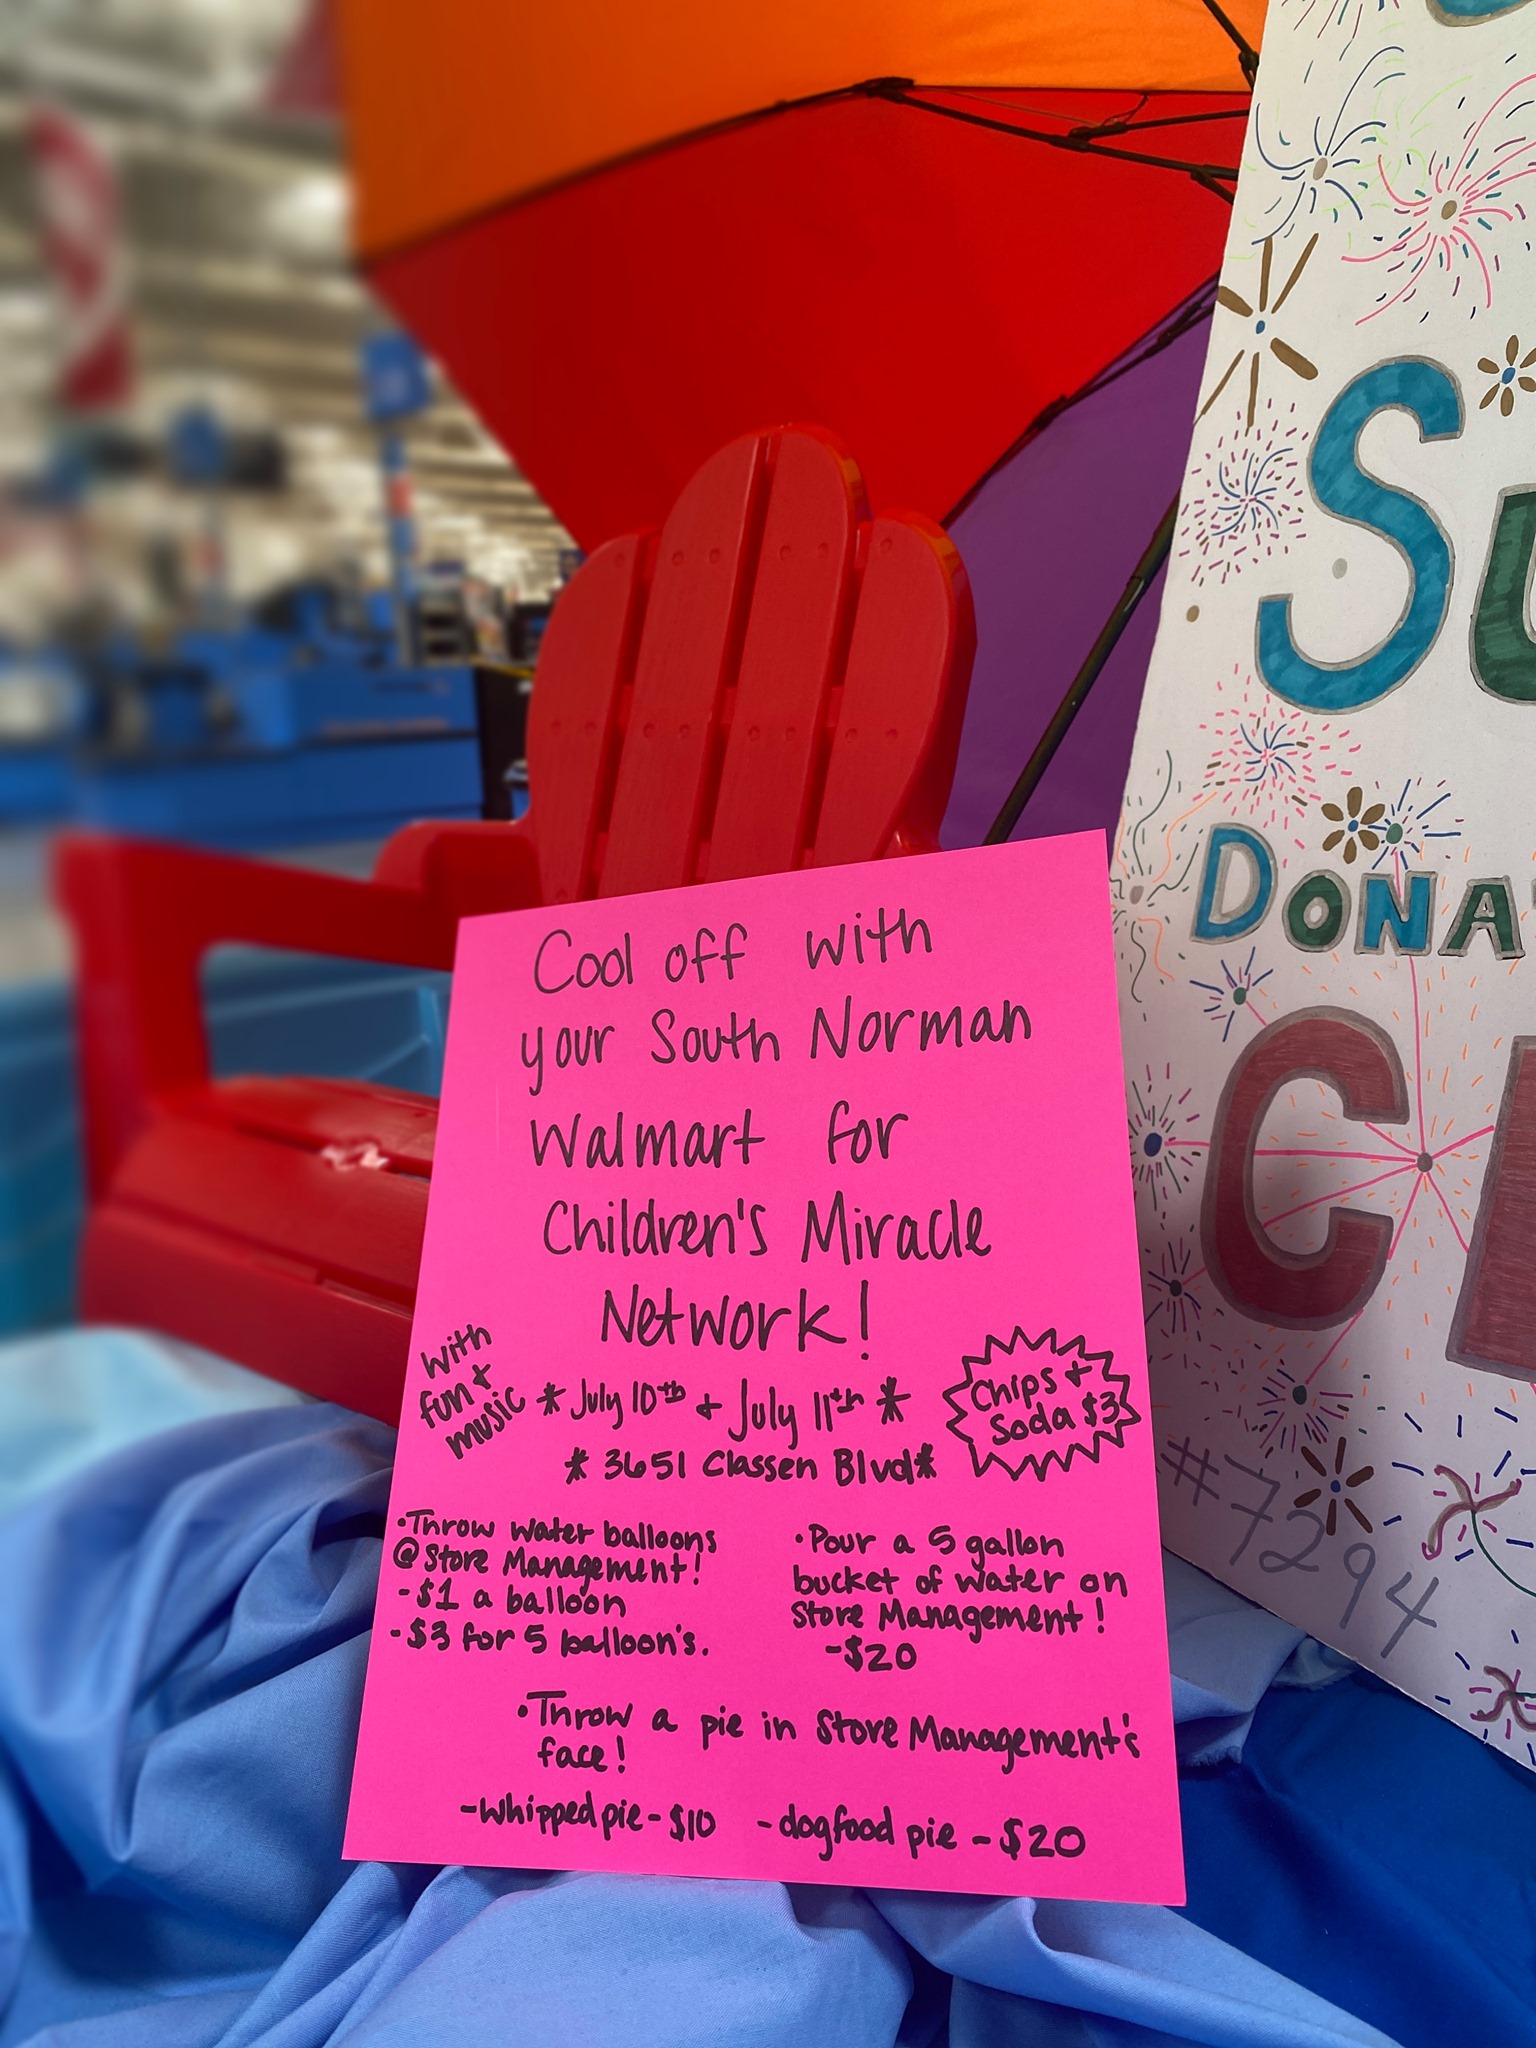 Cool off with
your South Norman
Walmart for
Children's Miracle
Network!
with
fun +
music
* July 10th + July 11th *
* 3651 Classen Blvd *
Chips +
Soda $3
• Throw water balloons
@ Store Management!
- $1 a balloon
- $3 for 5 balloon's.
• Pour a 5 gallon
bucket of water on
Store Management!
- $20
• Throw a pie in Store Management's
face!
- whipped pie - $10 - dogfood pie - $20
Su
DONA
C
#7294